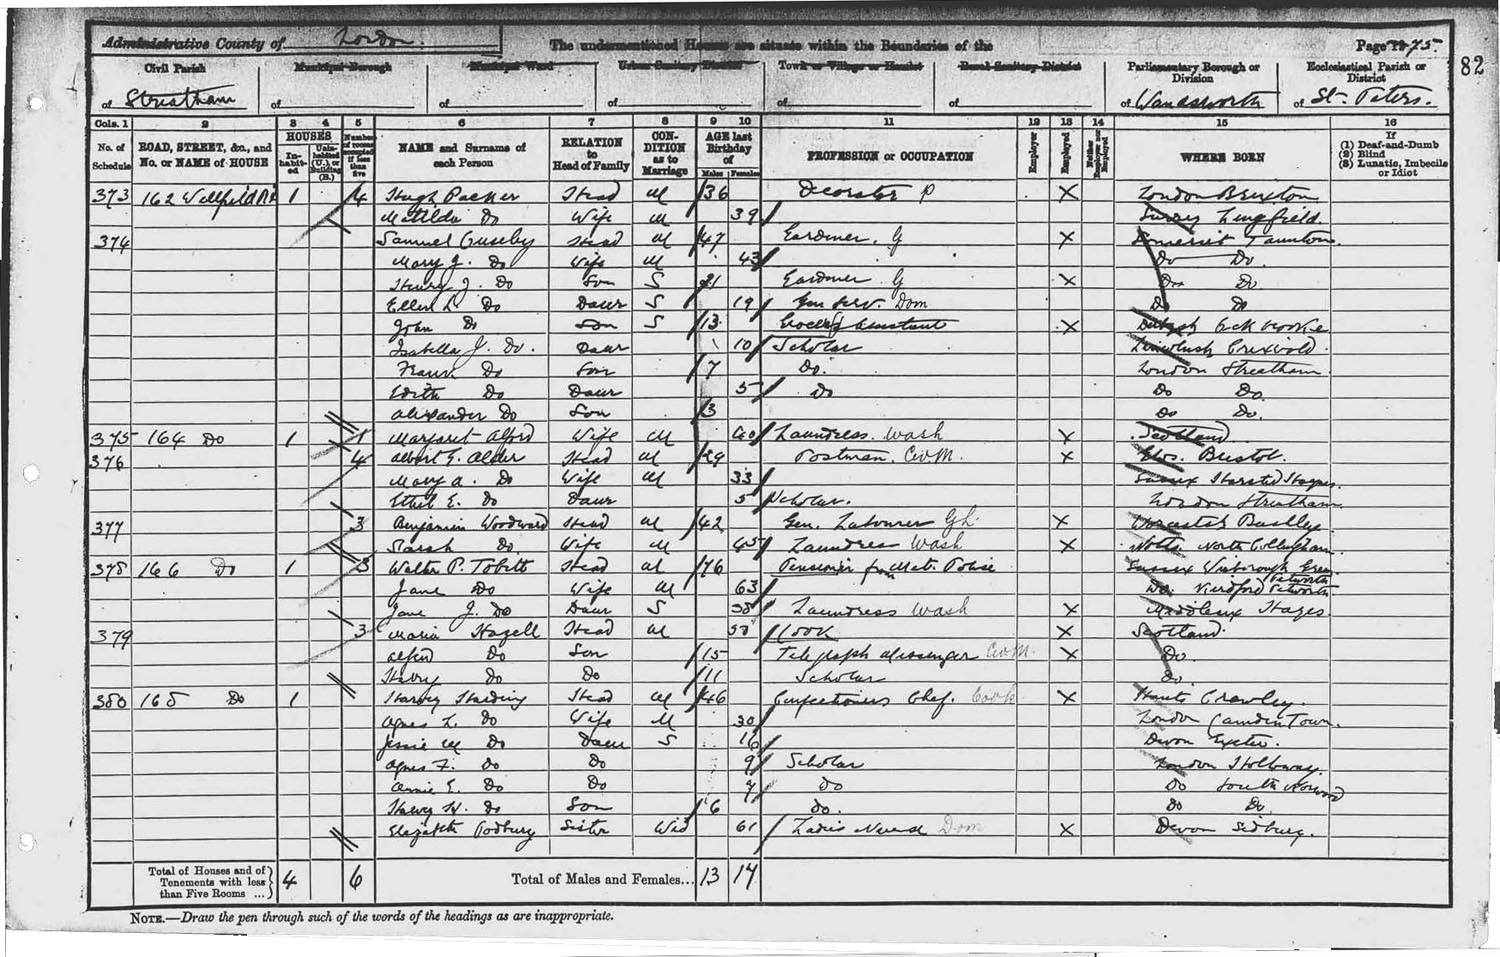 Administrative County of London. The undermentioned Houses are situate within the Boundaries of the Page 75.
82
Civil Parish Municipal Borough Municipal Ward Urban Sanitary District Town or Village or Hamlet Rural Sanitary District Parliamentary Borough or Division Ecclesiastical Parish or District
of Streatham of of of of of of Wandsworth of St. Peters.
Cols. 1 2 3 4 5 6 7 8 9 10 11 12 13 14 15 16
No. of Schedule ROAD, STREET, &c., and No. or NAME of HOUSE HOUSES Inhabited Uninhabited (U.), or Building (B.) Number of rooms occupied if less than five NAME and Surname of each Person RELATION to Head of Family CONDITION as to Marriage AGE last Birthday of Males Females PROFESSION or OCCUPATION Employer Employed Neither Employer nor Employed WHERE BORN If (1) Deaf-and-Dumb (2) Blind (3) Lunatic, Imbecile or Idiot
373 162 Wellfield Rd 1 4 Hugh Packer Head M 36 Decorator P X London Brixton
Matilda Do Wife M 39 Surrey Lingfield
374 Samuel Head M 47 Gardener. G X Somerset Taunton
Mary J. Do Wife M 43 Do Do
Henry J. Do Son S 21 Gardener G X Do Do
Ellen L. Do Daur S 19 Gen Serv. Dom Do Do
John Do Son S 13 Grocers Assistant X
Isabella J. Do. Daur 10 Scholar
Frank Do Son 7 Do. London Streatham
Edith Do Daur 5 Do Do Do.
Alexander Do Son 3 Do Do.
375 164 Do 1 1 Margaret Alford Wife M 40 Laundress. Wash X Scotland
376 4 Albert E. Alder Head M 29 Postman. Civ M. X Glos. Bristol.
Mary A. Do Wife M 33 Sussex Horsted Keynes.
Ethel E. Do Daur 5 Scholar. London Streatham
377 3 Benjamin Woodward Head M 42 Gen. Labourer G L. X
Sarah Do Wife M 45 Laundress Wash X Notts. North Collingham.
378 166 Do 1 3 Walter P. Tobitt Head M 76 Pensioner from Met. Police Sussex Wisborough Green
Jane Do Wife M 63 Do. Kirdford Petworth
Jane J. Do Daur S 38 Laundress Wash X Middlesex Hayes.
379 3 Maria Hazell Head M 50 Cook X Scotland
Alfred Do Son 15 Telegraph Messenger Civ M. X Do.
Harry Do Do 11 Scholar Do
380 168 Do 1 Harvey Harding Head M 46 Confectioners Chef. Cook X Hants Crawley.
Agnes L. Do Wife M 30 London Camden Town.
Jessie M Do Daur S 16 Devon Exeter.
Agnes F. Do Do 9 Scholar London Holloway.
Annie E. Do Do 7 Do Do South Norwood
Harvey H. Do Son 6 Do. Do Do
Elizabeth Sister Wid 61 Ladies Nurse Dom X Devon Sidbury.
Total of Houses and of Tenements with less than Five Rooms ... 4 6 Total of Males and Females... 13 17
NOTE.—Draw the pen through such of the words of the headings as are inappropriate.